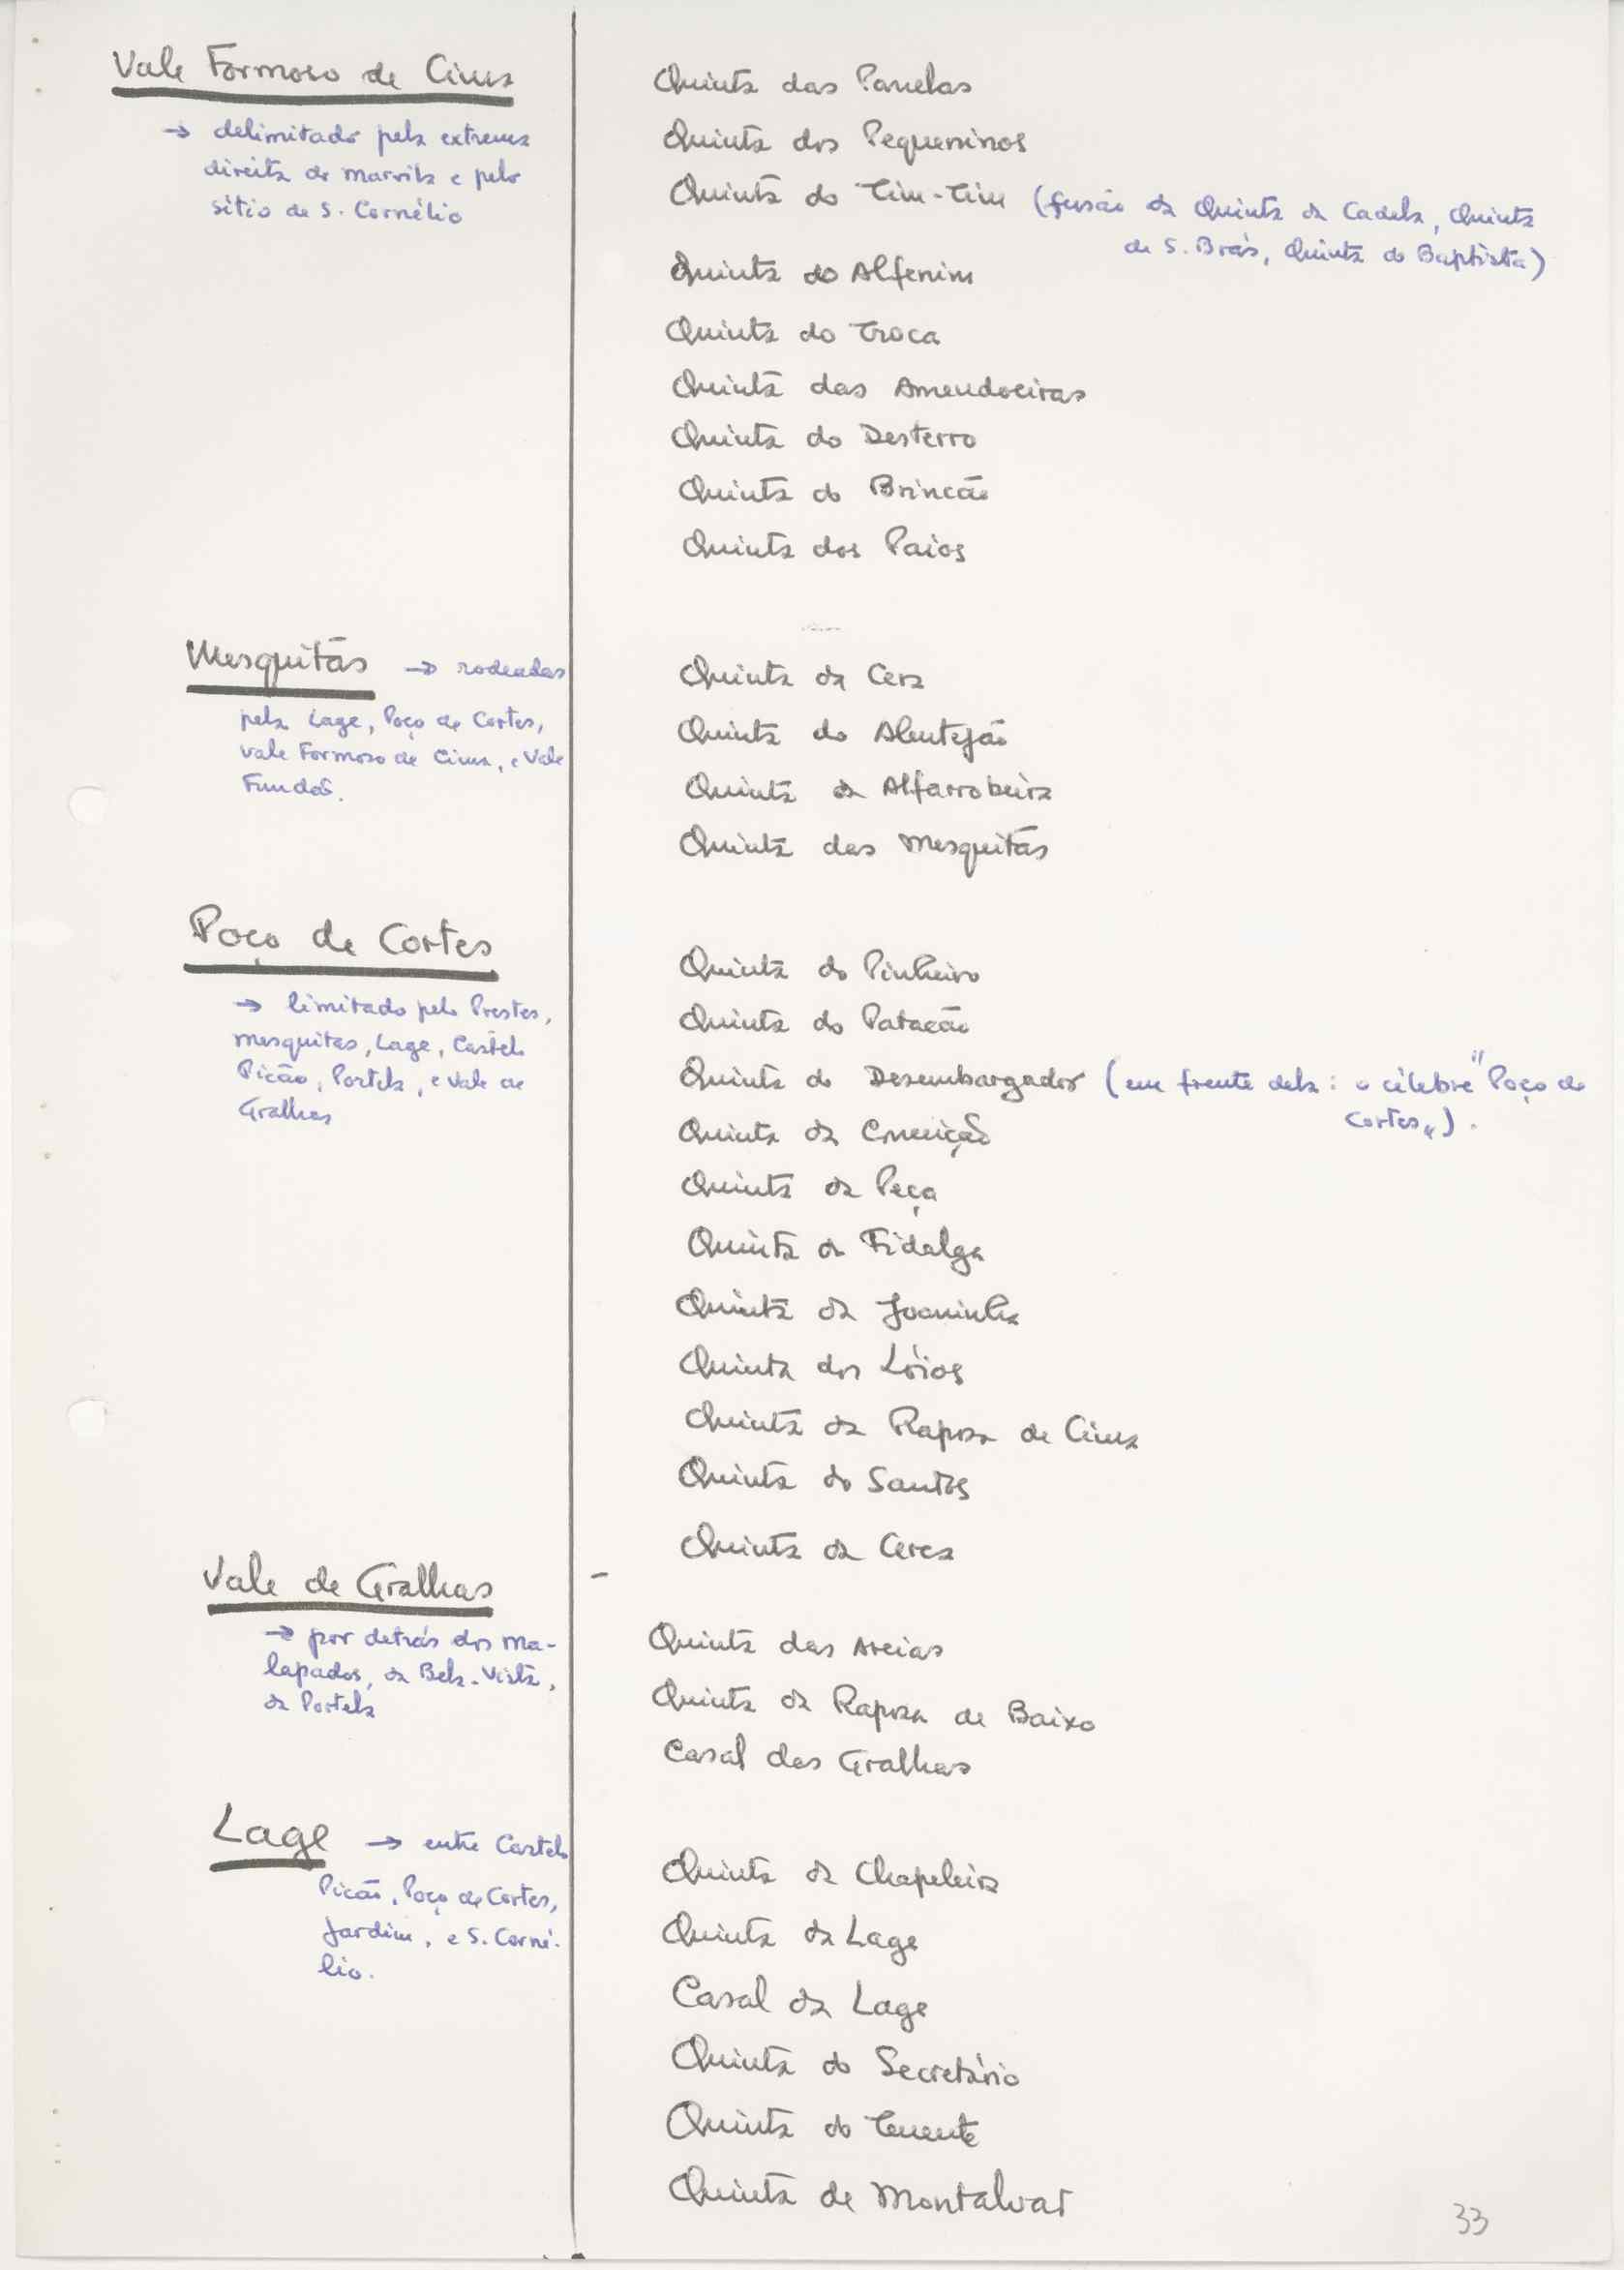 Vale Formoso de Cima
→ delimitado pela extrema
direita de Marvila e pelo
sítio de S. Cornélio
Quinta das Panelas
Quinta dos Pequeninos
Quinta do Tim-Tim (fusão da Quinta da Cadela, Quinta
de S. Brás, Quinta do Baptista)
Quinta do Alfenim
Quinta do Troca
Quinta das Amendoeiras
Quinta do Desterro
Quinta do Brincão
Quinta dos Paios
Mesquitas → rodeadas
pela Lage, Poço de Cortes,
Vale Formoso de Cima, e Vale
Fundão.
Quinta da Cera
Quinta do Alentejão
Quinta da Alfarrobeira
Quinta das Mesquitas
Poço de Cortes
→ limitado pelo Prestes,
Mesquitas, Lage, Castelo
Picão, Portela, e Vale de
Gralhas
Quinta do Pinheiro
Quinta do Patacão
Quinta do Desembargador (em frente dela: o célebre "Poço de
Cortes").
Quinta da Conceição
Quinta da Peça
Quinta da Fidalga
Quinta da Joaninha
Quinta dos Lóios
Quinta da Raposa de Cima
Quinta do Santos
Quinta da Cerca
Vale de Gralhas
→ por detrás dos Ma-
lapados, da Bela-Vista,
da Portela
Quinta das Areias
Quinta da Raposa de Baixo
Casal das Gralhas
Lage → entre Castelo
Picão, Poço de Cortes,
Jardim, e S. Corné-
lio.
Quinta da Chapeleira
Quinta da Lage
Casal da Lage
Quinta do Secretário
Quinta do Tenente
Quinta de Montalvar
33